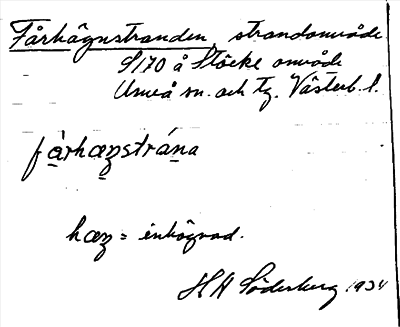 Fårhägnstranden, strandområde
S170 å Stöcke område
Umeå sn. och tg. Västerb. l.
fàrhæŋstrána
hæŋ = inhägnad.
HH Söderberg 1934